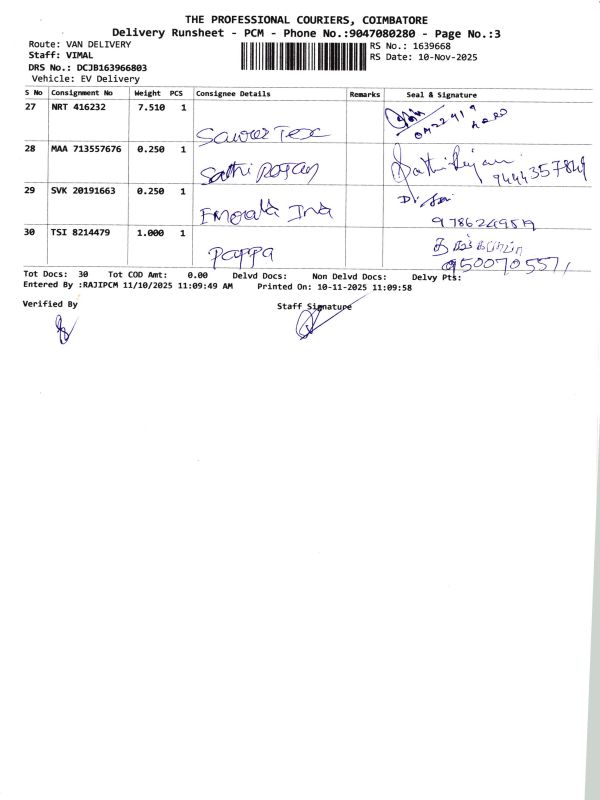 THE PROFESSIONAL COURIERS, COIMBATORE
Delivery Runsheet - PCM - Phone No.:9047080280 - Page No.:3
Route: VAN DELIVERY
Staff: VIMAL
DRS No.: DCJB163966803
Vehicle: EV Delivery
RS No.: 1639668
RS Date: 10-Nov-2025
S No Consignment No Weight PCS Consignee Details Remarks Seal & Signature
27 NRT 416232 7.510 1
28 MAA 713557676 0.250 1
Sathi Rajan 9444357849
29 SVK 20191663 0.250 1
30 TSI 8214479 1.000 1
Pappa
Tot Docs: 30 Tot COD Amt: 0.00 Delvd Docs: Non Delvd Docs: Delvy Pts:
Entered By :RAJIPCM 11/10/2025 11:09:49 AM Printed On: 10-11-2025 11:09:58
Verified By Staff Signature